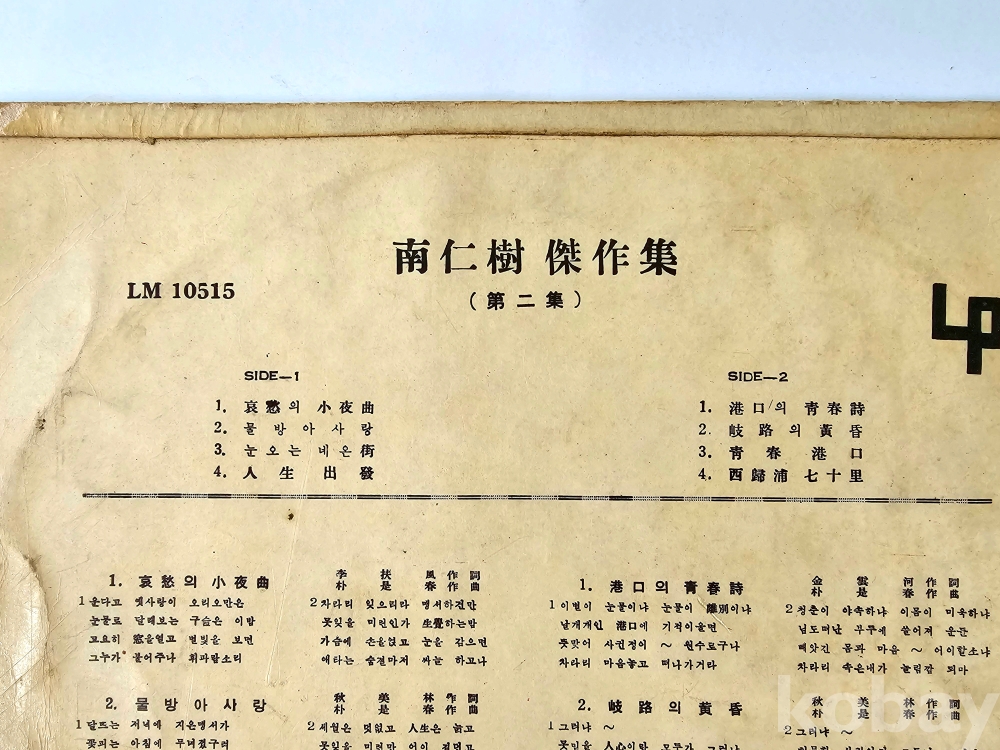 南仁樹 傑作集
LM 10515
(第二集)
LP
SIDE—1
1. 哀愁의 小夜曲
2. 물방아사랑
3. 눈오는 네온街
4. 人生出發
SIDE—2
1. 港口의 靑春詩
2. 岐路의 黃昏
3. 靑春港口
4. 西歸浦 七十里
1. 哀愁의 小夜曲
李扶風 作詞
朴是春 作曲
1 운다고 옛사랑이 오리오만은
눈물로 달래보는 구슬은 이밤
고요히 窓을열고 별빛을 보면
그누가 불어주나 휘파람소리
2 차라리 잊으리라 맹서하건만
못잊을 미련인가 生覺하는밤
가슴에 손을얹고 눈을 감으면
애타는 숨결마저 싸늘 하고나
2. 물방아사랑
秋美林 作詞
朴是春 作曲
1 달뜨는 저녁에 지은맹서가
꽃피는 아침에 무너졌구려
2 세월은 덧없고 人生은 늙고
못잊을 미련만
1. 港口의 靑春詩
金雲河 作詞
朴是春 作曲
1 이별이 눈물이냐 눈물이 離別이냐
날개개인 港口에 기적이울면
뜻맞어 사귄정이 ~ 원수로구나
차라리 마음놓고 떠나가거라
2 청춘이 야속하냐 이몸이 미욱하냐
님도떠난 부두에 쓸어져 운단
빼앗긴 몸과 마음 ~ 어이할소냐
차라리 속은내가 눌림감 되마
2. 岐路의 黃昏
秋美林 作詞
朴是春 作曲
1 그러냐 ~
못믿을 人心이란 모두가 그러냐
2 그러냐 ~
kobay